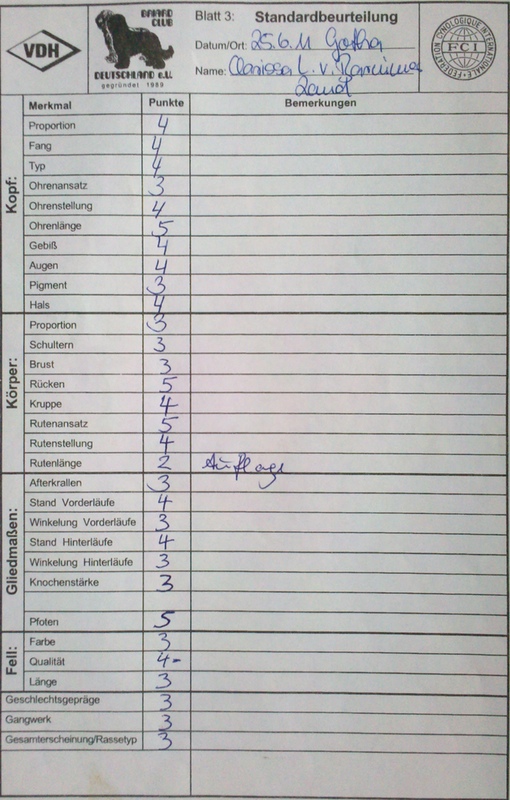 VDH
BRIARD
CLUB
DEUTSCHLAND e.V.
gegründet 1989
Blatt 3: Standardbeurteilung
Datum/Ort: 25.6.11 Gotha
Name: L. v.
FCI
FEDERATION CYNOLOGIQUE INTERNATIONALE
Merkmal Punkte Bemerkungen
Kopf:
Proportion 4
Fang 4
Typ 4
Ohrenansatz 3
Ohrenstellung 4
Ohrenlänge 5
Gebiß 4
Augen 4
Pigment 3
Hals 4
Körper:
Proportion 3
Schultern 3
Brust 3
Rücken 5
Kruppe 4
Rutenansatz 5
Rutenstellung 4
Rutenlänge 2 Auflage
Gliedmaßen:
Afterkrallen 3
Stand Vorderläufe 4
Winkelung Vorderläufe 3
Stand Hinterläufe 4
Winkelung Hinterläufe 3
Knochenstärke 3
Pfoten 5
Fell:
Farbe 3
Qualität 4-
Länge 3
Geschlechtsgepräge 3
Gangwerk 3
Gesamterscheinung/Rassetyp 3